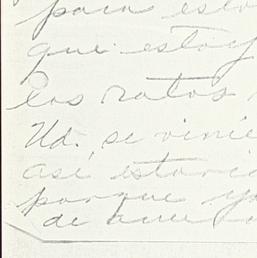 para
que estoy
los ratos
Ud. se vinie
así estaría
porque yo
de